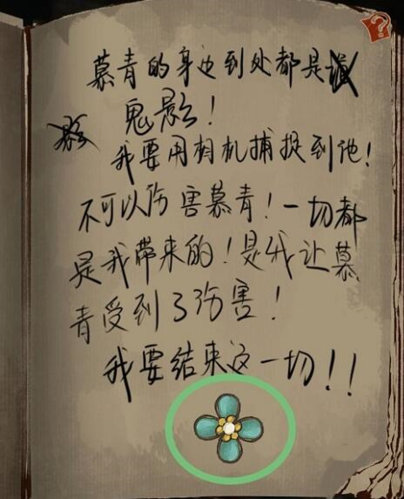 慕青的身边到处都是
鬼影！
我要用相机捕捉到他！
不可以伤害慕青！一切都
是我带来的！是我让慕
青受到了伤害！
我要结束这一切！！
?